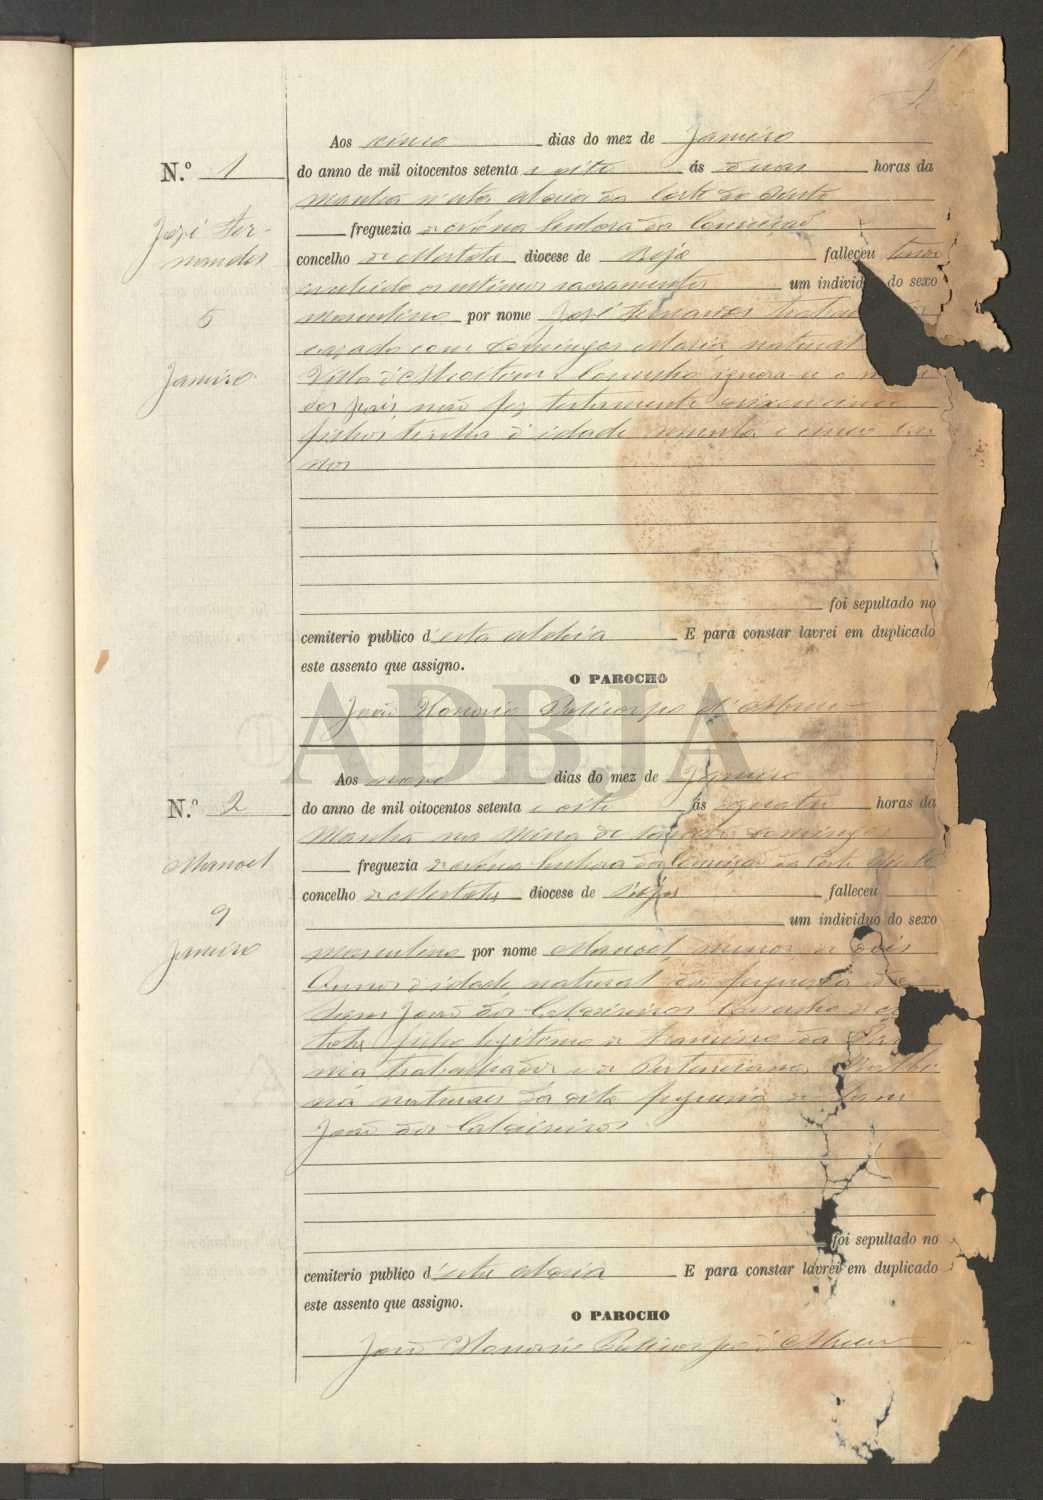 Aos cinco dias do mez de Janeiro
N.º 1 do anno de mil oitocentos setenta e oito ás duas horas da
manhã n'esta aldeia da Corte do Pinto
José Fer- freguezia de Nossa Senhora da Conceição
nandes concelho de Mertola diocese de Beja falleceu tendo
recebido os ultimos sacramentos um individuo do sexo
5 masculino por nome José Fernandes
cazado com Domingas Maria natural
Janeiro Villa d' Concelho ignora-se o
dos pais, não fez testamento deixou cinco
filhos tinha d'idade e cinco an-
nos
foi sepultado no
cemiterio publico d'esta aldeia E para constar lavrei em duplicado
este assento que assigno.
O PAROCHO
João Honorio Policarpo d'Abreu
ADBJA
Aos nove dias do mez de Janeiro
N.º 2 do anno de mil oitocentos setenta e oito ás quatro horas da
Manhã na Mina de São Domingos
Manoel freguezia de Nossa Senhora da Conceição da Corte do Pinto
concelho de Mertola diocese de Beja falleceu
9 um individuo do sexo
Janeiro masculino por nome Manoel menor de dois
Annos d'idade natural da freguezia de
Sam João dos Caldeireiros Concelho de
tola, filho legitimo de Francisco da
trabalhador e de
naturaes da dita freguezia de Sam
João dos Caldeireiros
foi sepultado no
cemiterio publico d'esta aldeia E para constar lavrei em duplicado
este assento que assigno.
O PAROCHO
João Honorio Policarpo d'Abreu